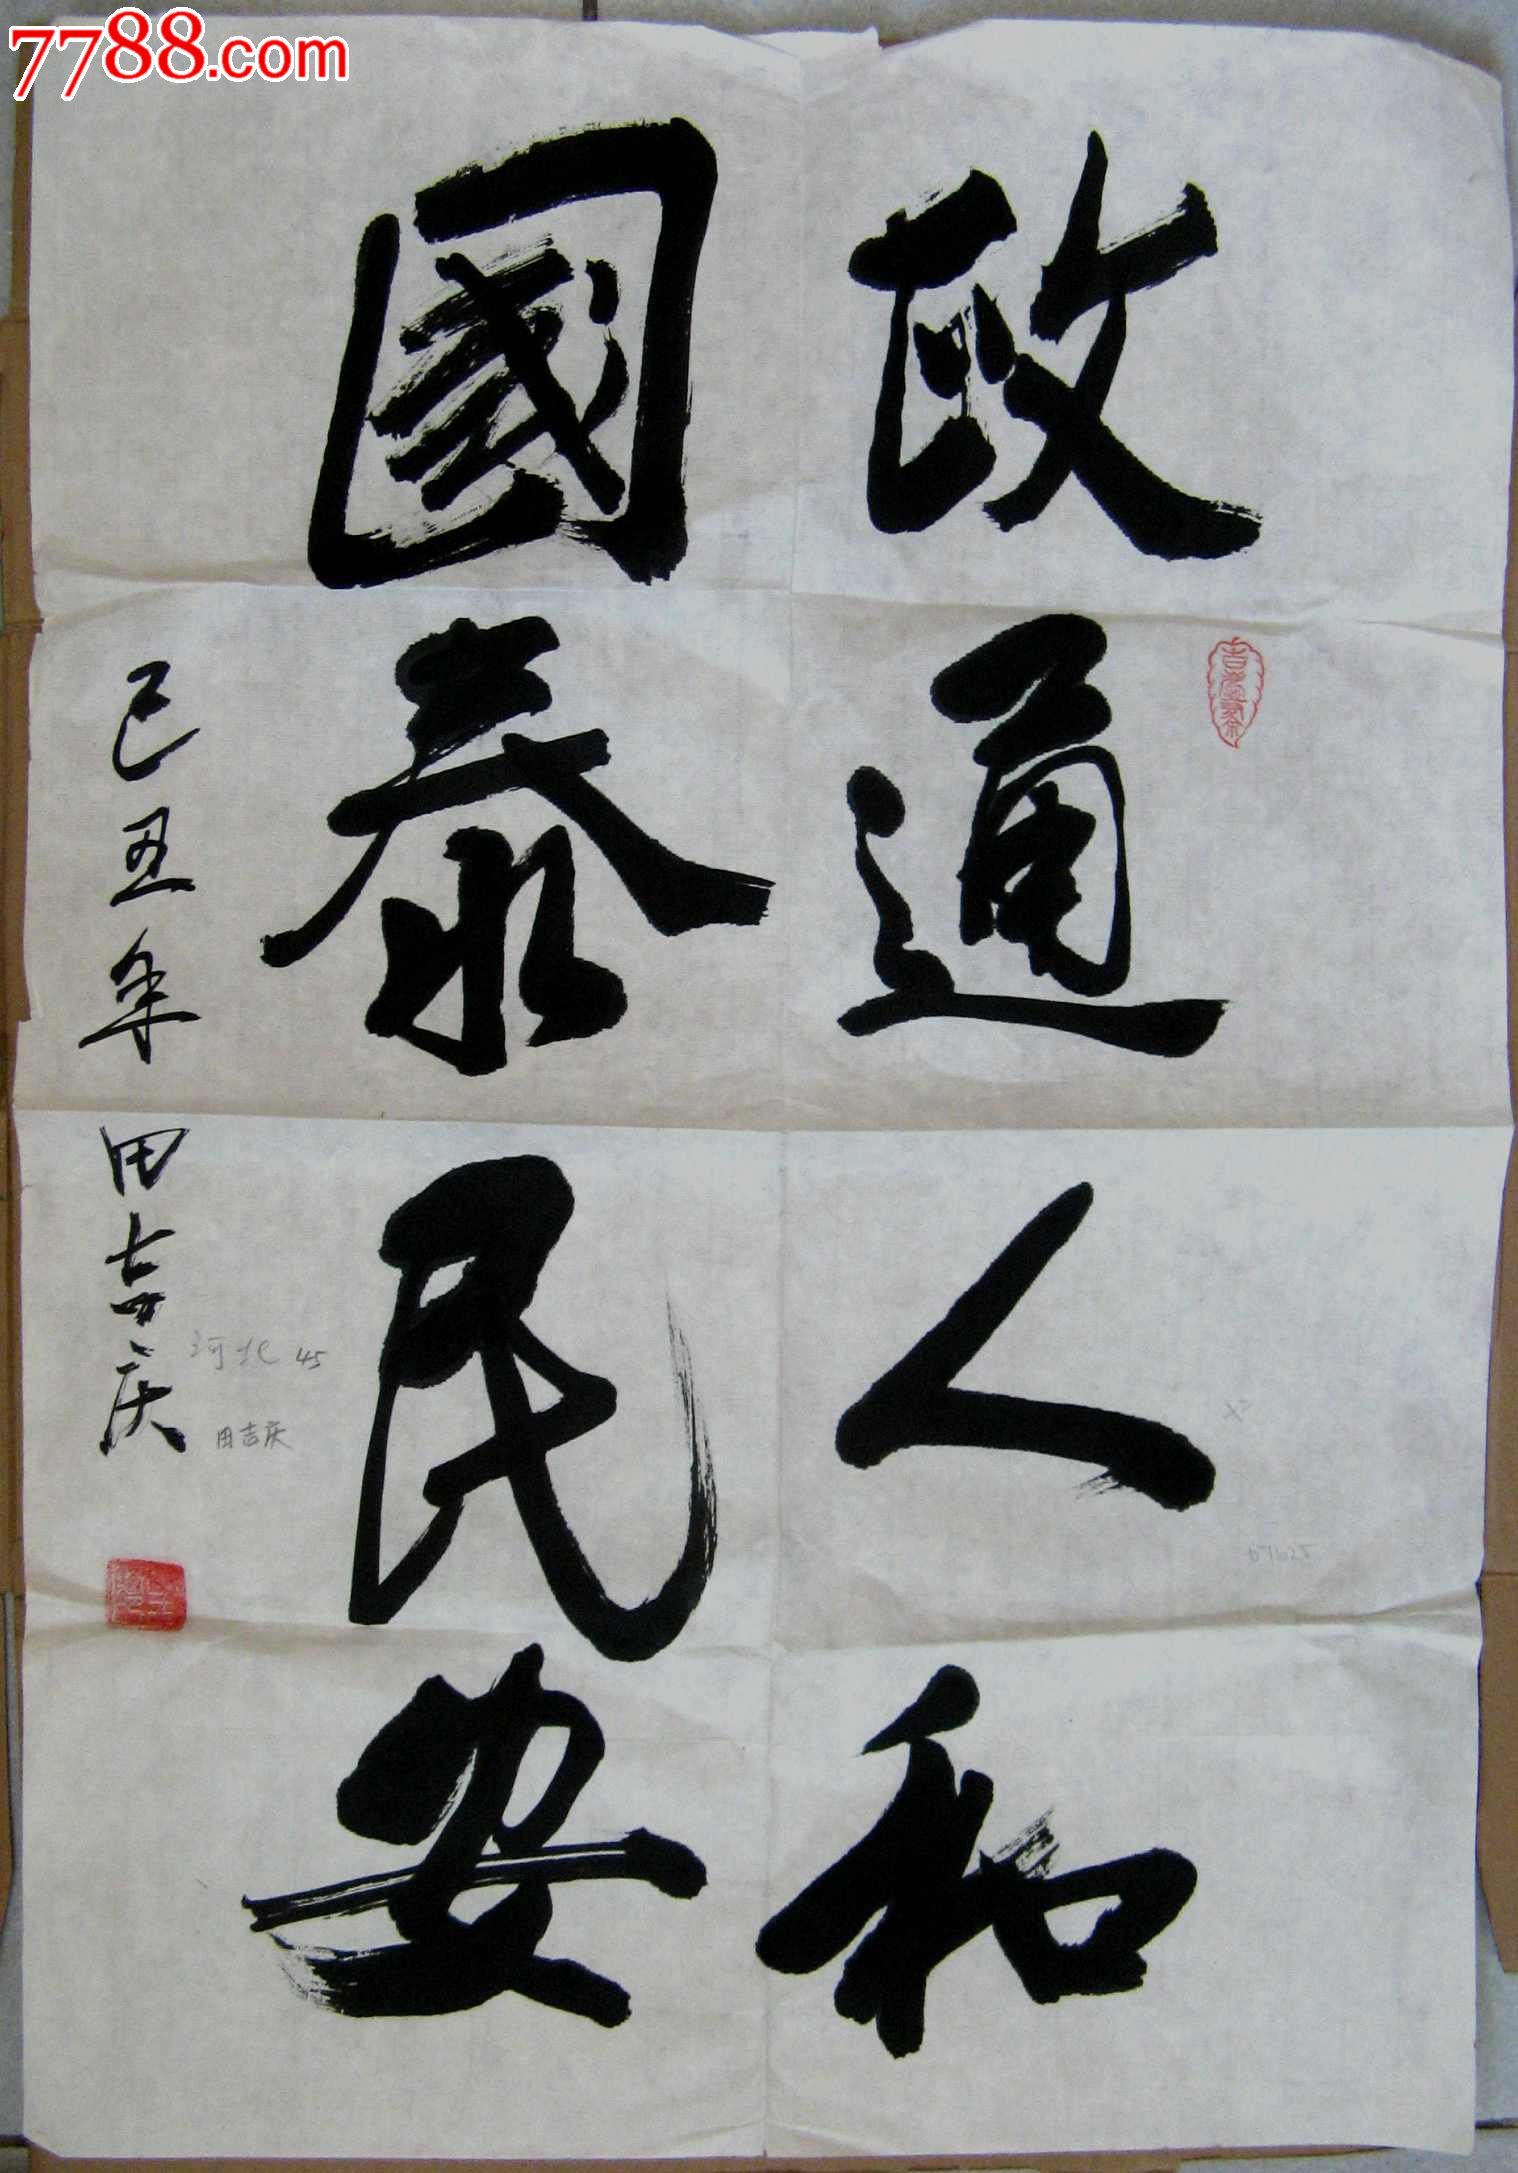 7788.com
政通人和
國泰民安
己丑年
田吉庆
河北 45
田吉庆